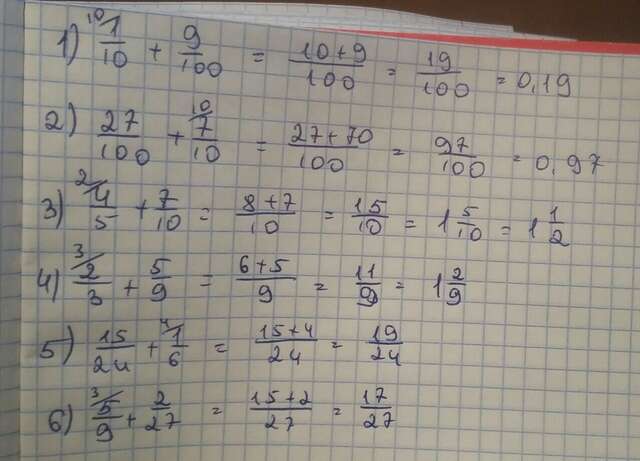 1) ¹⁰⁄1/10 + 9/100 = (10+9)/100 = 19/100 = 0,19
2) 27/100 + ¹⁰⁄7/10 = (27+70)/100 = 97/100 = 0,97
3) ²⁄4/5 + 7/10 = (8+7)/10 = 15/10 = 1 5/10 = 1 1/2
4) ³⁄2/3 + 5/9 = (6+5)/9 = 11/9 = 1 2/9
5) 15/24 + ⁴⁄1/6 = (15+4)/24 = 19/24
6) ³⁄5/9 + 2/27 = (15+2)/27 = 17/27